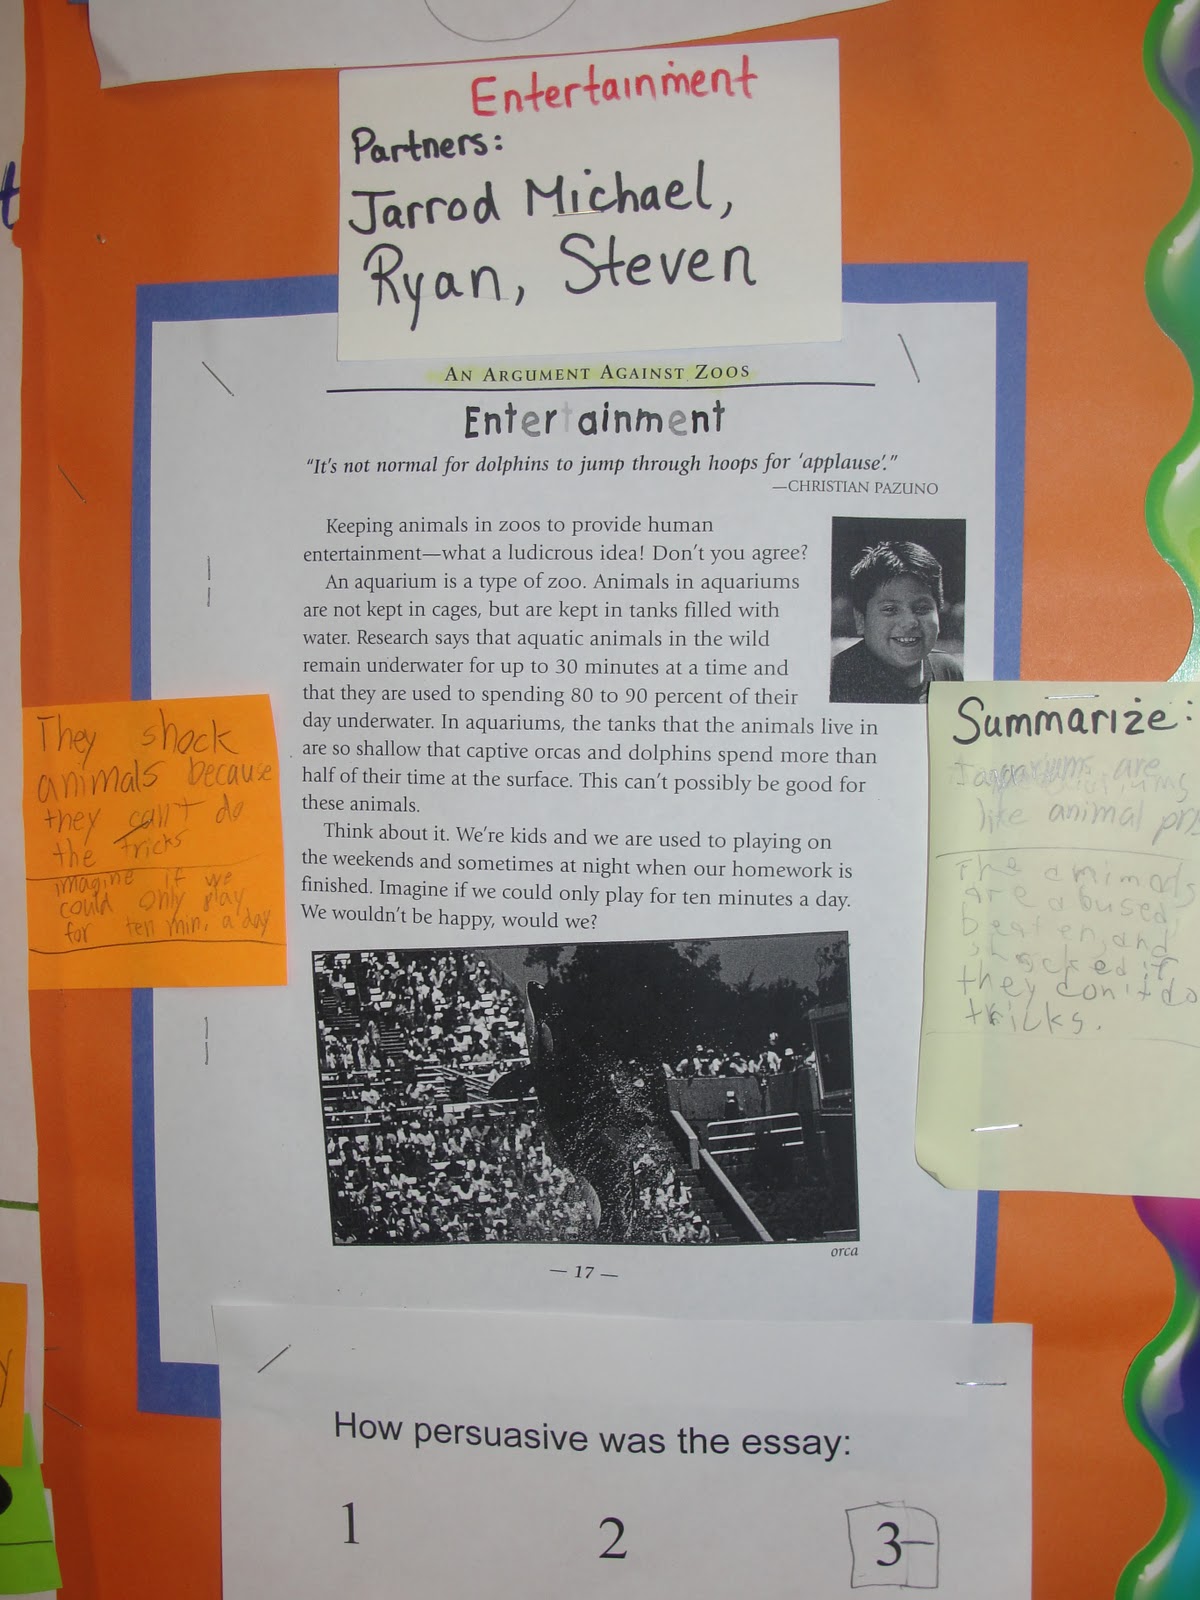 Entertainment
Partners:
Jarrod Michael,
Ryan, Steven
AN ARGUMENT AGAINST ZOOS
Entertainment
“It’s not normal for dolphins to jump through hoops for ‘applause’.”
—CHRISTIAN PAZUNO
Keeping animals in zoos to provide human
entertainment—what a ludicrous idea! Don’t you agree?
An aquarium is a type of zoo. Animals in aquariums
are not kept in cages, but are kept in tanks filled with
water. Research says that aquatic animals in the wild
remain underwater for up to 30 minutes at a time and
that they are used to spending 80 to 90 percent of their
day underwater. In aquariums, the tanks that the animals live in
are so shallow that captive orcas and dolphins spend more than
half of their time at the surface. This can’t possibly be good for
these animals.
Think about it. We’re kids and we are used to playing on
the weekends and sometimes at night when our homework is
finished. Imagine if we could only play for ten minutes a day.
We wouldn’t be happy, would we?
orca
— 17 —
They shock
animals because
they can't do
the tricks
imagine if we
could only play
for ten min. a day
Summarize:
are
like animal
The animals
are abused,
beaten, and
shocked if
they don't do
tricks.
How persuasive was the essay:
1 2 3